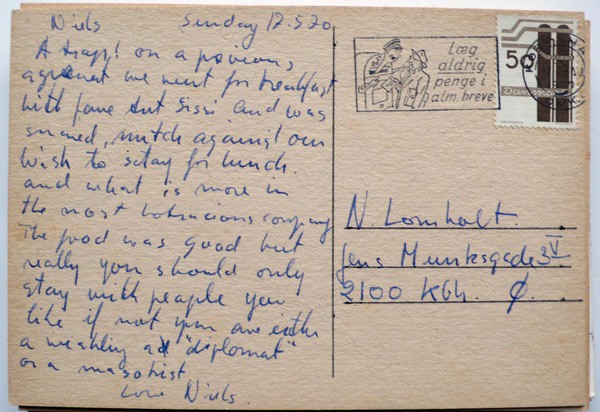 Niels Sunday 17.5.70
A trapp! on a previous
agrement we went for breakfast
with fane and Sissi and was
snared, mutch against our
wish to stay for lunch.
and what is more in
the most company
The food was good but
really you should only
stay with people you
like if not you are either
a "diplomat"
or a masokist
Love Niels.
Læg
aldrig
penge i
alm. breve
50
Danmark
N. Lomholt.
Jens Munksgade 3 V
2100 Kbh. Ø.